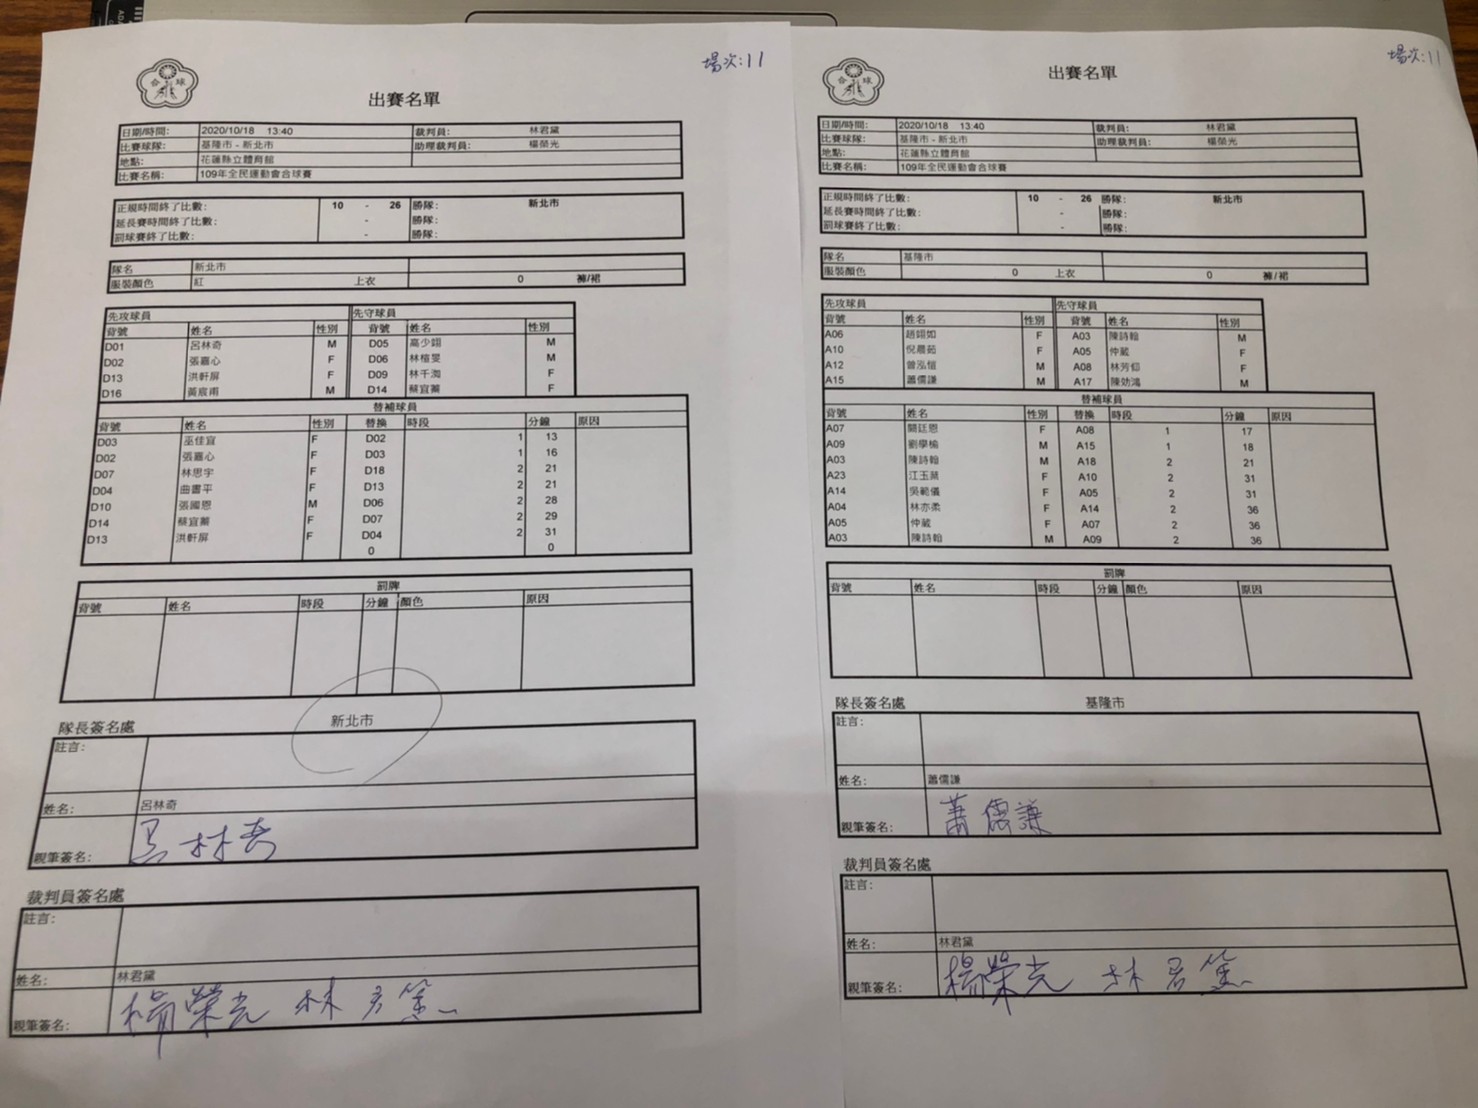 場次:11
合 球
出賽名單
日期/時間: 2020/10/18 13:40 裁判員: 林君黛
比賽球隊: 基隆市 - 新北市 助理裁判員: 楊榮光
地點: 花蓮縣立體育館
比賽名稱: 109年全民運動會合球賽
正規時間終了比數: 10 - 26 勝隊: 新北市
延長賽時間終了比數: - 勝隊:
罰球賽終了比數: - 勝隊:
隊名 新北市
服裝顏色 紅 上衣 0 褲/裙
先攻球員 先守球員
背號 姓名 性別 背號 姓名 性別
D01 呂林奇 M D05 高少翊 M
D02 張嘉心 F D06 林楦旻 M
D13 洪軒屏 F D09 林千 F
D16 黃宸甫 M D14 蔡宜蓁 F
替補球員
背號 姓名 性別 替換 時段 分鐘 原因
D03 巫佳宜 F D02 1 13
D02 張嘉心 F D03 1 16
D07 林思宇 F D18 2 21
D04 曲書平 F D13 2 21
D10 張國恩 M D06 2 28
D14 蔡宜蓁 F D07 2 29
D13 洪軒屏 F D04 2 31
0 0
罰牌
背號 姓名 時段 分鐘 顏色 原因
隊長簽名處 新北市
註言:
姓名: 呂林奇
親筆簽名: 呂林奇
裁判員簽名處
註言:
姓名: 林君黛
親筆簽名: 楊榮光 林君黛
場次:11
合 球
出賽名單
日期/時間: 2020/10/18 13:40 裁判員: 林君黛
比賽球隊: 基隆市 - 新北市 助理裁判員: 楊榮光
地點: 花蓮縣立體育館
比賽名稱: 109年全民運動會合球賽
正規時間終了比數: 10 - 26 勝隊: 新北市
延長賽時間終了比數: - 勝隊:
罰球賽終了比數: - 勝隊:
隊名 基隆市
服裝顏色 0 上衣 0 褲/裙
先攻球員 先守球員
背號 姓名 性別 背號 姓名 性別
A06 趙翊如 F A03 陳詩翰 M
A10 倪晨茹 F A05 仲葳 F
A12 曾泓愷 M A08 林芳仰 F
A15 蕭儒謙 M A17 陳効鴻 M
替補球員
背號 姓名 性別 替換 時段 分鐘 原因
A07 關廷恩 F A08 1 17
A09 劉學榆 M A15 1 18
A03 陳詩翰 M A18 2 21
A23 江玉 F A10 2 31
A14 吳範儀 F A05 2 31
A04 林亦柔 F A14 2 36
A05 仲葳 F A07 2 36
A03 陳詩翰 M A09 2 36
罰牌
背號 姓名 時段 分鐘 顏色 原因
隊長簽名處 基隆市
註言:
姓名: 蕭儒謙
親筆簽名: 蕭儒謙
裁判員簽名處
註言:
姓名: 林君黛
親筆簽名: 楊榮光 林君黛